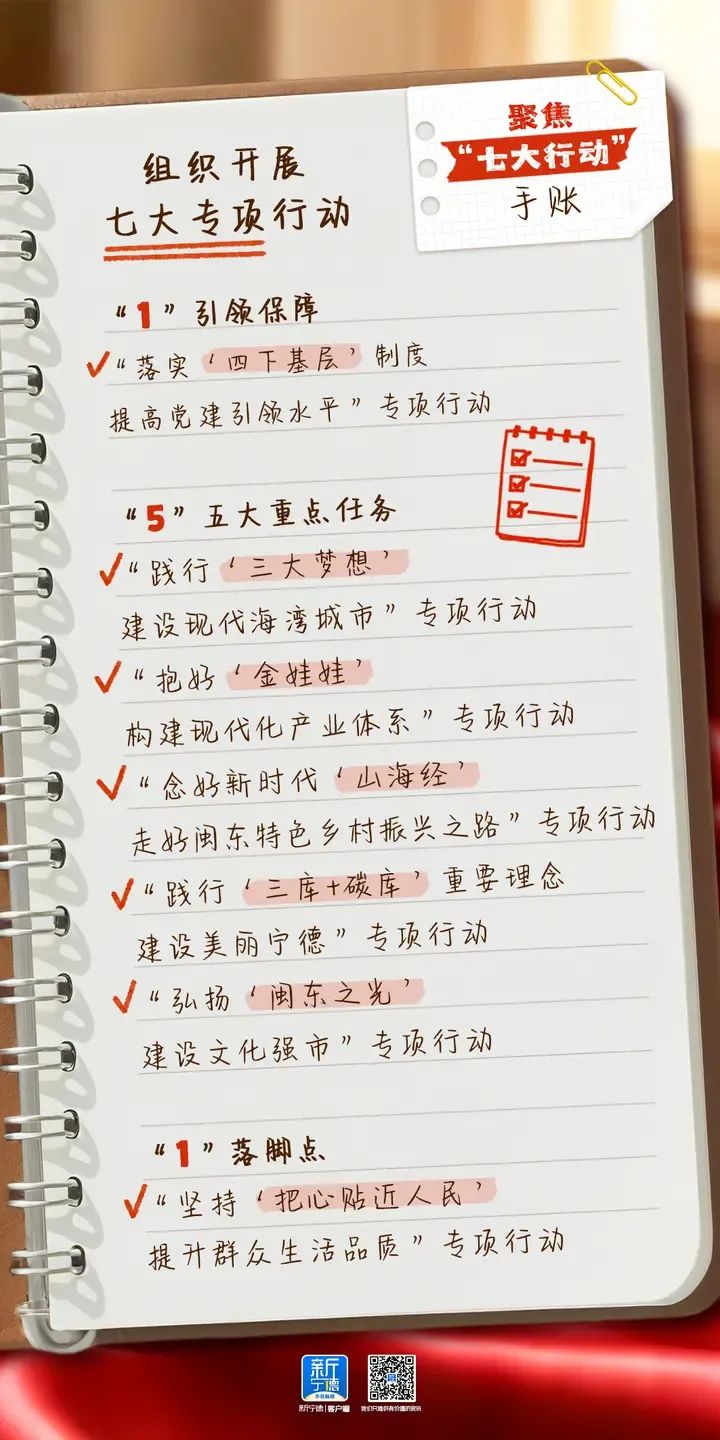 聚焦
“七大行动”
手账
组织开展
七大专项行动
“1”引领保障
“落实‘四下基层’制度
提高党建引领水平”专项行动
“5”五大重点任务
“践行‘三大梦想’
建设现代海湾城市”专项行动
“抱好‘金娃娃’
构建现代化产业体系”专项行动
“念好新时代‘山海经’
走好闽东特色乡村振兴之路”专项行动
“践行‘三库+碳库’重要理念
建设美丽宁德”专项行动
“弘扬‘闽东之光’
建设文化强市”专项行动
“1”落脚点
“坚持‘把心贴近人民’
提升群众生活品质”专项行动
新
宁德
新宁德|客户端
我们只提供有价值的资讯